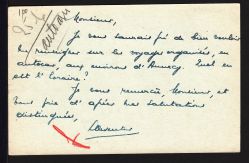 Monsieur,
Je vous saurais gré de bien vouloir
me renseigner sur les voyages organisés, en
autocar, aux environs d'Annecy. Quel en
est l'horaire?
Je vous remercie Monsieur, et
vous prie d'agréer mes salutations
distinguées,
autocar